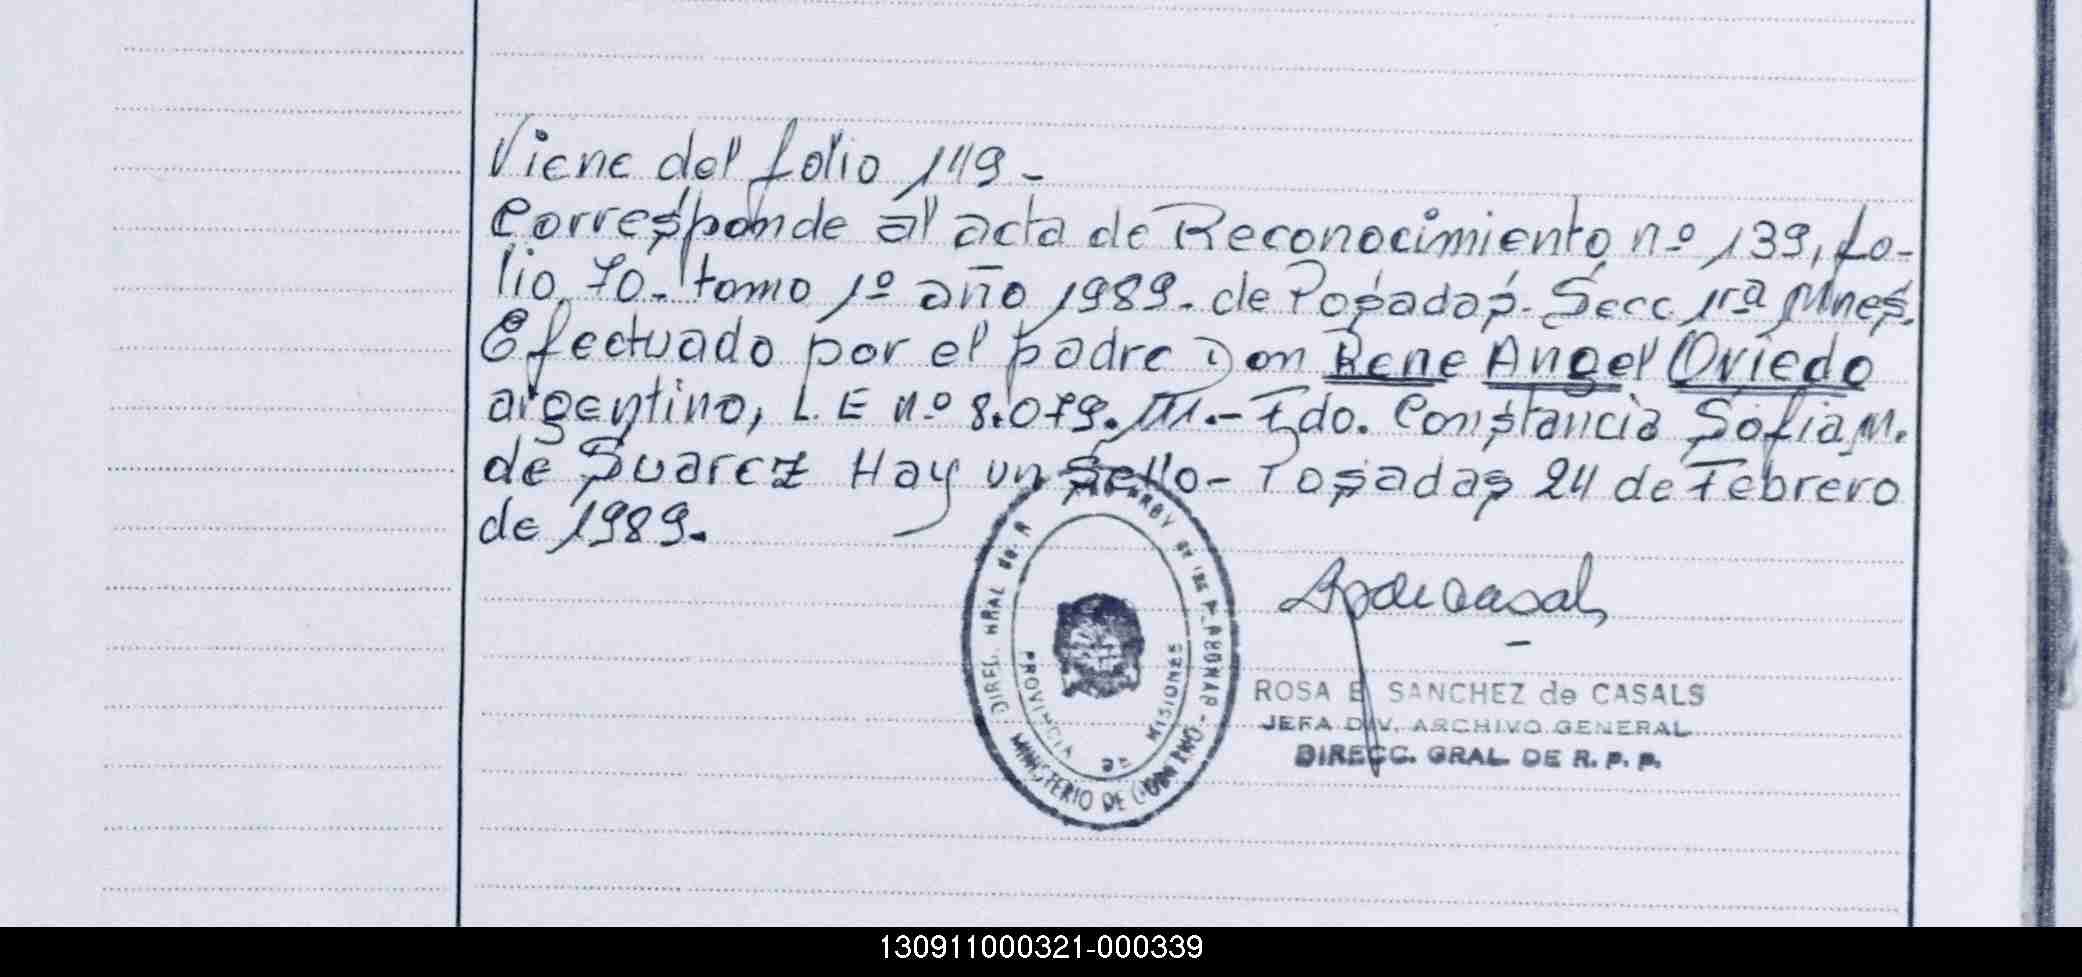 Viene del folio 149-
Corresponde al acta de Reconocimiento nº 139, fo-
lio 70- tomo 1º año 1989- de Posadas- Secc 1ra Mnes.
Efectuado por el padre Don Rene Angel Oviedo
argentino, L.E nº 8.079.111.- Fdo. Constancia Sofia M.
de Suarez Hay un Sello- Posadas 24 de Febrero
de 1989.
DIREC. GRAL de
de las PERSONAS -
MINISTERIO DE GOBIERNO
PROVINCIA de MISIONES
ROSA E SANCHEZ de CASALS
JEFA DIV. ARCHIVO GENERAL
DIRECC. GRAL. DE R. P. P.
130911000321-000339